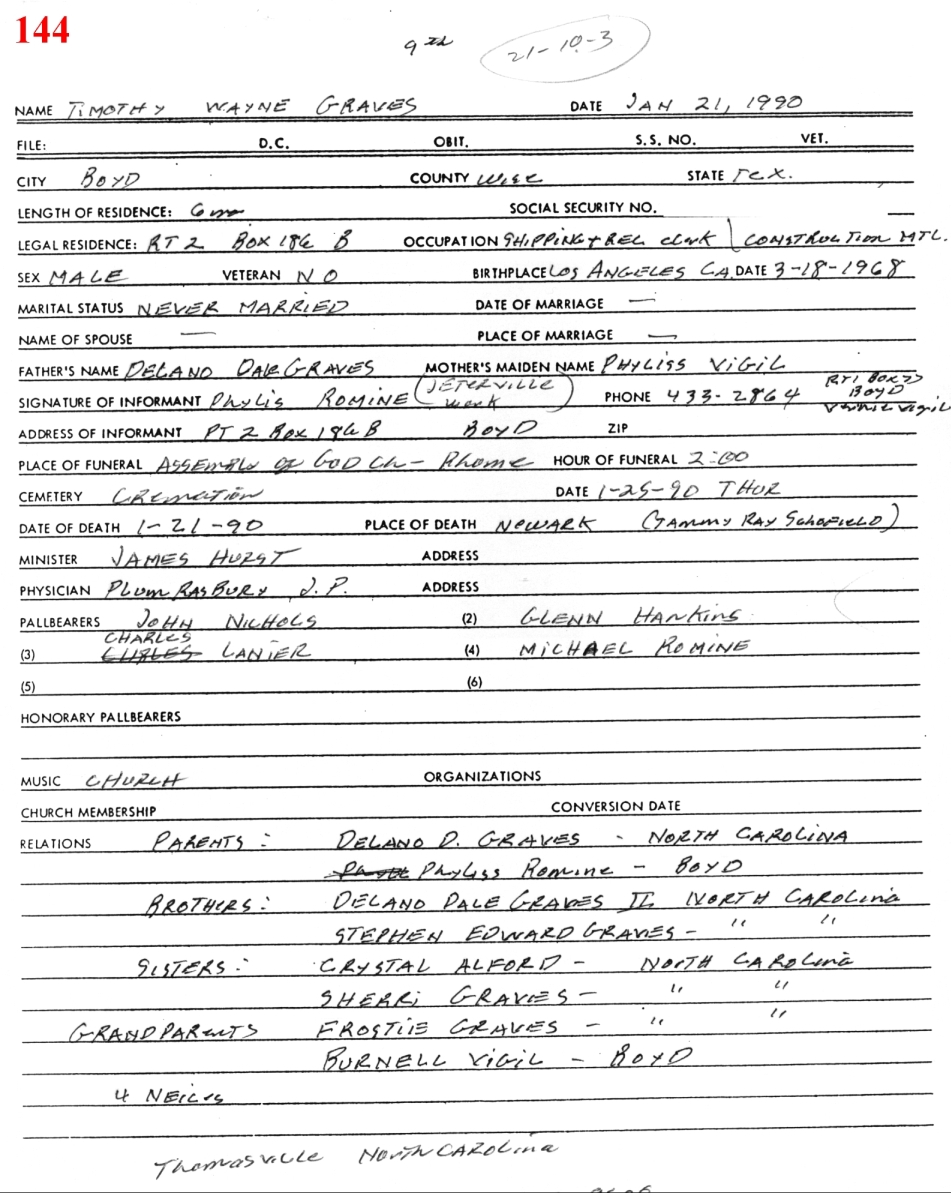 144
9th
21-10-3
NAME TIMOTHY WAYNE GRAVES DATE JAN 21, 1990
FILE: D.C. OBIT. S.S. NO. VET.
CITY BOYD COUNTY Wise STATE Tex.
LENGTH OF RESIDENCE: 6 mo SOCIAL SECURITY NO. —
LEGAL RESIDENCE: RT 2 BOX 186 B OCCUPATION SHIPPING + REC clerk CONSTRUCTION MTL.
SEX MALE VETERAN NO BIRTHPLACE LOS ANGELES CA. DATE 3-18-1968
MARITAL STATUS NEVER MARRIED DATE OF MARRIAGE —
NAME OF SPOUSE — PLACE OF MARRIAGE —
FATHER'S NAME DELANO DALE GRAVES MOTHER'S MAIDEN NAME PHYLISS VIGIL
SIGNATURE OF INFORMANT Phylis ROMINE (JETERVILLE work) PHONE 433-2864 RT 1 BOX BOYD Vigil
ADDRESS OF INFORMANT RT 2 Box 186 B BOYD ZIP
PLACE OF FUNERAL ASSEMBLY OF GOD CH - Rhome HOUR OF FUNERAL 2:00
CEMETERY CREMATION DATE 1-25-90 THUR
DATE OF DEATH 1-21-90 PLACE OF DEATH NEWARK (TAMMY RAY SCHOFIELD)
MINISTER JAMES HURST ADDRESS
PHYSICIAN PLUM RASBURY J.P. ADDRESS
PALLBEARERS JOHN NICHOLS (2) GLENN HANKINS
CHARLES
(3) LANIER (4) MICHAEL ROMINE
(5) (6)
HONORARY PALLBEARERS
MUSIC CHURCH ORGANIZATIONS
CHURCH MEMBERSHIP CONVERSION DATE
RELATIONS PARENTS: DELANO D. GRAVES - NORTH CAROLINA
Phyliss Romine - BOYD
BROTHERS: DELANO DALE GRAVES II NORTH CAROLINA
STEPHEN EDWARD GRAVES - " "
SISTERS: CRYSTAL ALFORD - NORTH CAROLINA
SHERRI GRAVES - " "
GRANDPARENTS FROSTIE GRAVES - " "
BURNELL VIGIL - BOYD
4 NEICES
Thomasville North CAROLINA